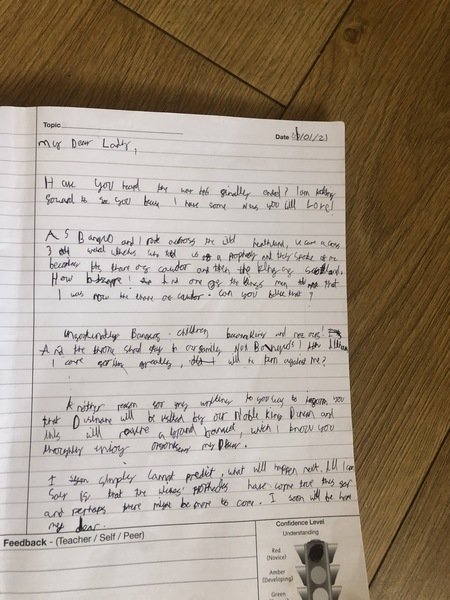 Topic
Date /01/21
My Dear Lady,
Have you heard the war has finally ended? I am looking
forward to see you because I have some news you will Love!
As Banquo and I rode across the wild heathland, we came across
3 weird witches who told us of a prophesy and they spoke of me
becoming the thane of cawdor and then the king of scotland.
How ! one of the kings men that
I was now the thane of cawdor. can you belive that?
Unfortunately Banquos children becoming and not ours!
And the throne should stay in our family Not Banquo's!
I care for him greatly, will he turn against me?
Another reason for my writing to you is to inform you
that Dusinane will be visited by our Noble King Duncan and
this will require a Grand banquet, which I know you
thoroughly enjoy organiser my Dear.
I simply cannot predict, what will happen next. All I can
say is that the witches prophecies have come true this far
and perhaps there might be more to come. I soon will be home
my dear.
Feedback - (Teacher / Self / Peer)
Confidence Level
Understanding
Red
(Novice)
Amber
(Developing)
Green